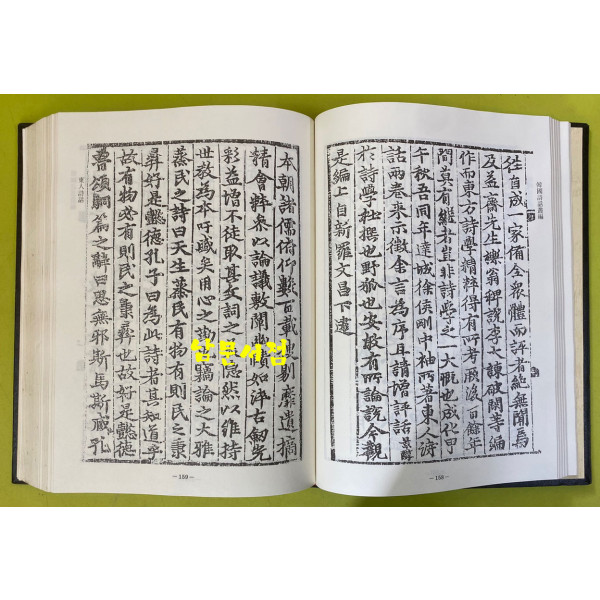 韓國詩話叢編
往自成一家備全衆體而評者絶無聞焉
及益齋先生櫟翁稗說李大諫破閑等編
作而東方詩學精粹得有所考厥後百餘年
間莫有継者豈非詩之一大慨也成化甲
午秋吾同年達城徐侯剛中袖所著東人詩
話両卷来示徵余言為序且請增評話景醇
於詩學杜撰也野狐也安敢有所論說今觀
是編上自新羅文昌下逮
－158－
本朝諸儒俯仰數百載剔遺摘
精會粹叅以論議敷闡如淬古劔光
彩益增不徒取其文詞之隱然以維持
世敎為本吁盛矣用心之論之大雅
蒸民之詩曰天生蒸民有物有則民之秉
彛好是懿德孔子曰為此詩者其知道乎
故有物必有則民之秉彛也故好是懿德
魯頌駉篇之辭曰思無邪斯馬斯臧孔
東人詩話
－159－
남문서점